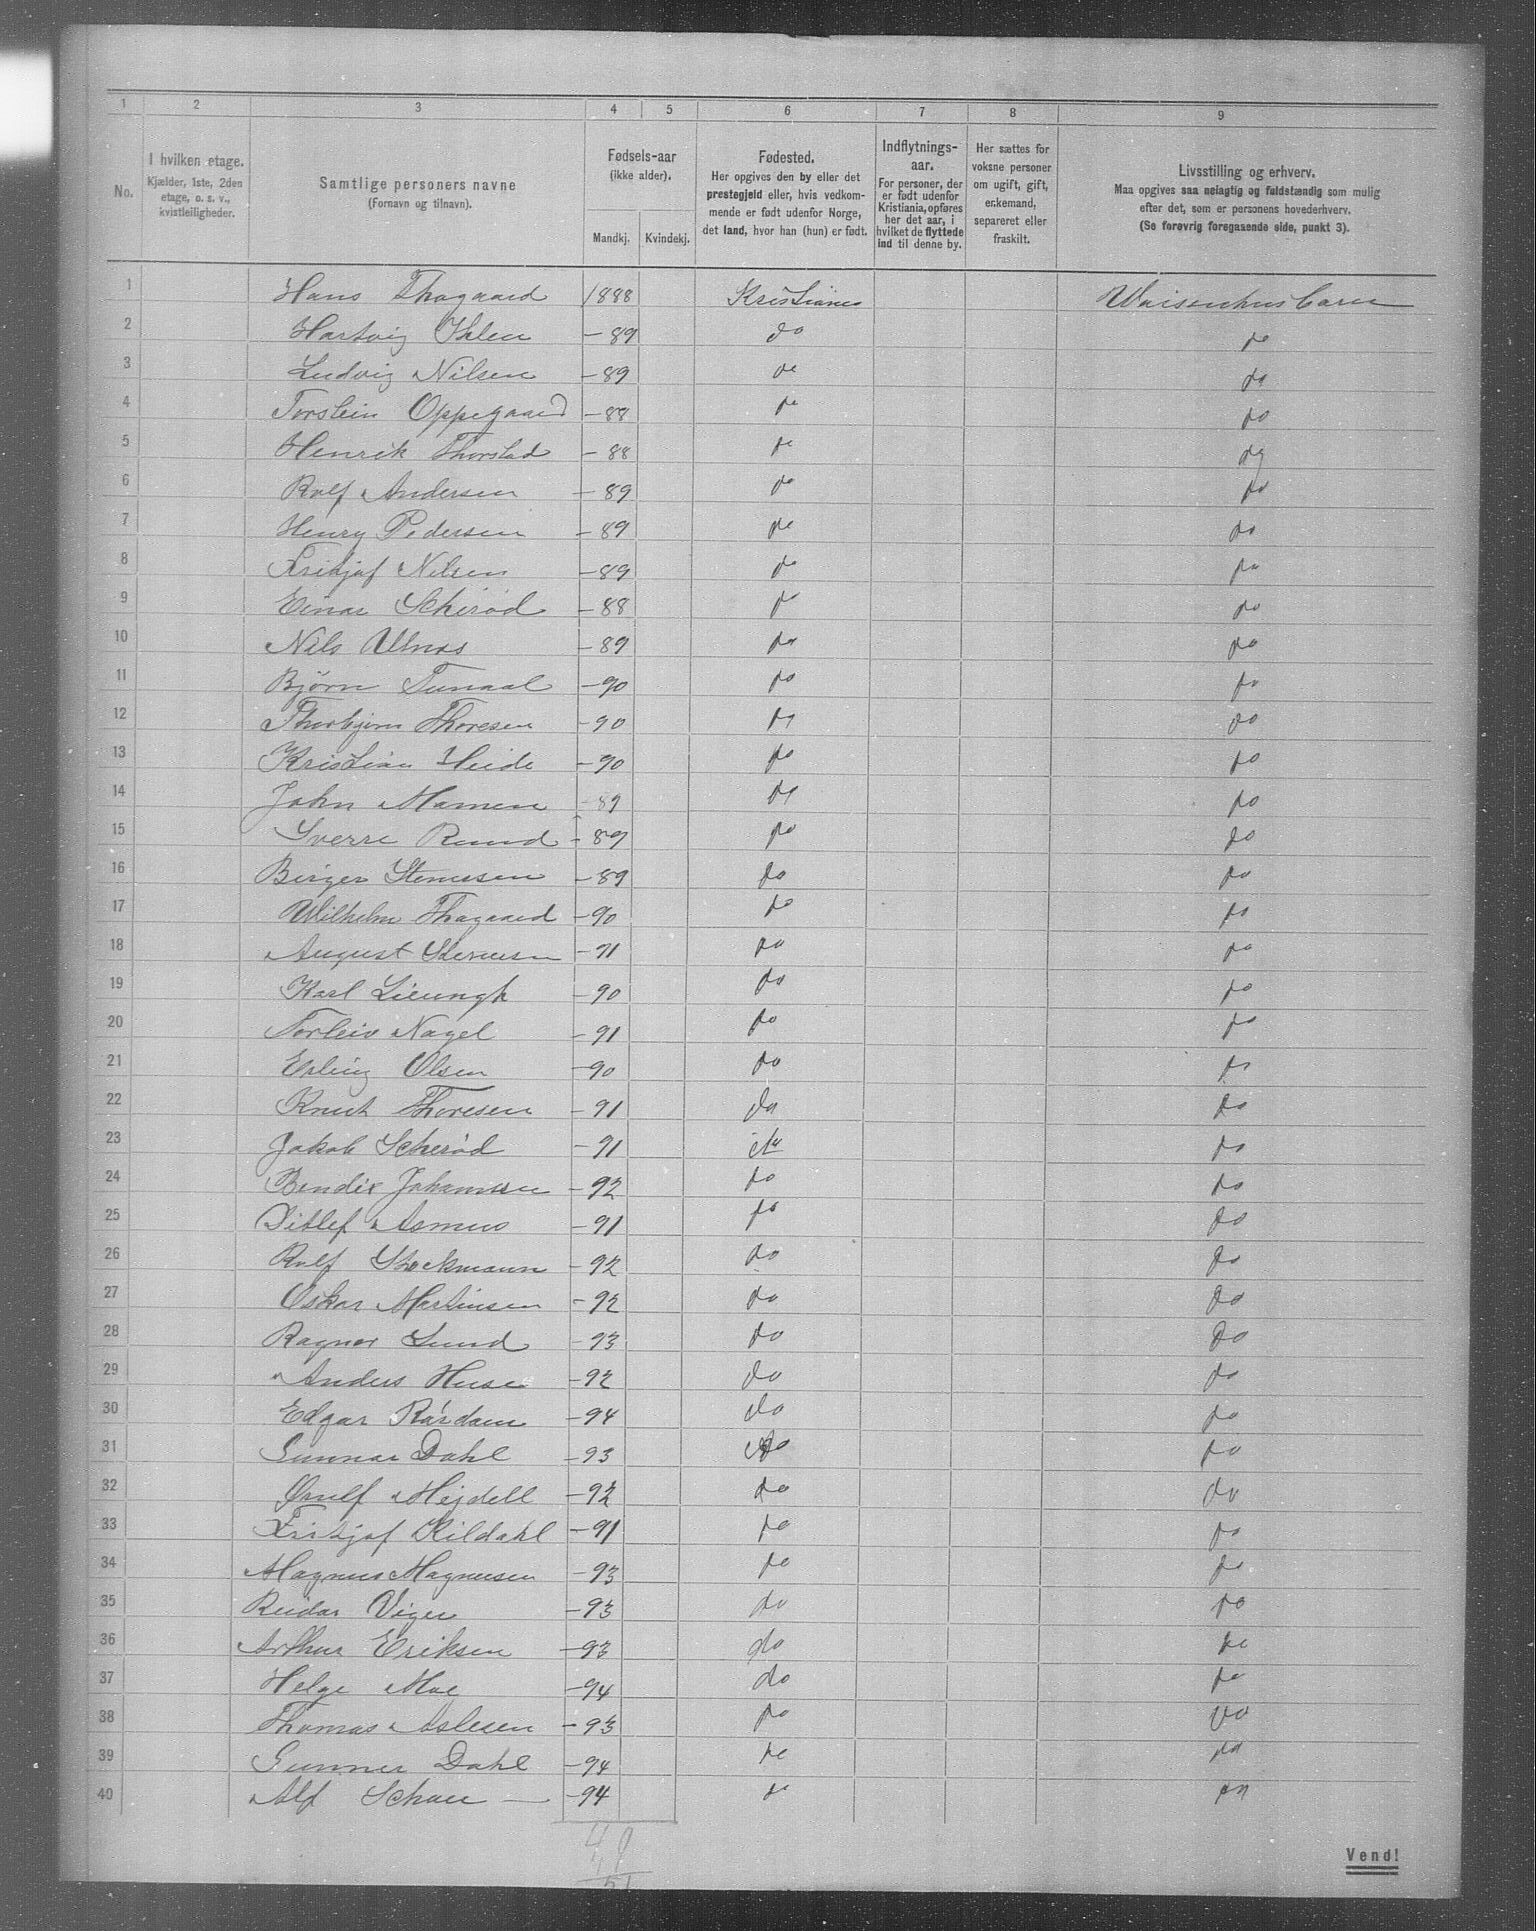 1 2 3 4 5 6 7 8 9
No.
I hvilken etage.
Kjælder, 1ste, 2den
etage, o. s. v.,
kvistleiligheder.
Samtlige personers navne
(Fornavn og tilnavn).
Fødsels-aar
(ikke alder).
Mandkj. Kvindekj.
Fødested.
Her opgives den by eller det
prestegjeld eller, hvis vedkom-
mende er født udenfor Norge,
det land, hvor han (hun) er født.
Indflytnings-
aar.
For personer, der
er født udenfor
Kristiania, opføres
her det aar, i
hvilket de flyttede
ind til denne by.
Her sættes for
voksne personer
om ugift, gift,
enkemand,
separeret eller
fraskilt.
Livsstilling og erhverv.
Maa opgives saa nøiagtig og fuldstændig som mulig
efter det, som er personens hovederhverv.
(Se forøvrig foregaaende side, punkt 3).
1 Hans Thagaard 1888 Kristiania Waisenhusbarn
2 Hartvig Ihlen - 89 do do
3 Ludvig Nilsen - 89 do do
4 Torstein Oppegaard - 88 do do
5 Henrik Thorstad - 88 do do
6 Rolf Andersen - 89 do do
7 Henry Pedersen - 89 do do
8 Fritjof Nilsen - 89 do do
9 Einar Scherød - 88 do do
10 Nils Ulnæs - 89 do do
11 Bjørn Tunaal - 90 do do
12 Thorbjørn Thoresen - 90 do do
13 Kristian Heide - 90 do do
14 John Mamen - 89 do do
15 Sverre Ruud - 89 do do
16 Birger Stenersen - 89 do do
17 Wilhelm Thagaard - 90 do do
18 August Stenersen - 91 do do
19 Karl Lieungh - 90 do do
20 Torleiv Nagel - 91 do do
21 Erling Olsen - 90 do do
22 Knut Thoresen - 91 do do
23 Jakob Scherød - 91 do do
24 Bendix Johannssen - 92 do do
25 Ditlef Asmus - 91 do do
26 Rolf Stockmann - 92 do do
27 Oskar Martinsen - 92 do do
28 Ragnar Lund - 93 do do
29 Anders Huse - 92 do do
30 Edgar Rørdam - 94 do do
31 Gunnar Dahl - 93 do do
32 Ørnulf Mejdell - 92 do do
33 Fritjof Kildahl - 91 do do
34 Magnus Magnussen - 93 do do
35 Reidar Viger - 93 do do
36 Arthur Eriksen - 93 do do
37 Helge Moe - 94 do do
38 Thomas Aslesen - 93 do do
39 Gunner Dahl - 94 do do
40 Alf Schau - 94 do do
Vend!